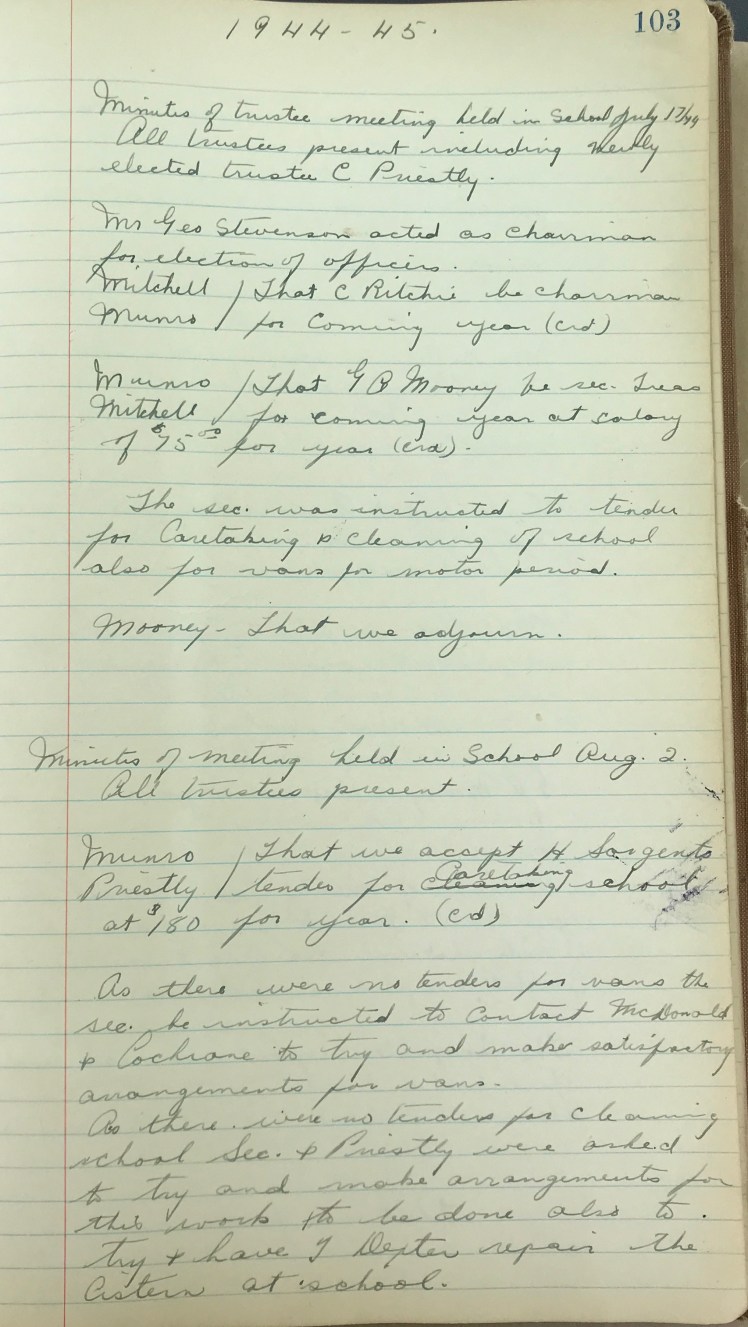 103
1944-45.
Minutes of trustee meeting held in School July 17/44
All trustees present including newly
elected trustee C Priestly.
Mr Geo Stevenson acted as chairman
for election of officers.
Mitchell / That C Ritchie be chairman
Munro / for Coming year (crd)
Munro / That G B Mooney be sec. Treas
Mitchell / for coming year at salary
of $75.00 for year (crd).
The sec. was instructed to tender
for Caretaking & cleaning of school
also for vans for motor period.
Mooney - That we adjourn.
Minutes of meeting held in School Aug. 2.
All trustees present.
Munro / That we accept H Sargents
Priestly / tender for cleaning Caretaking school
at $180 for year. (crd)
As there were no tenders for vans the
sec. be instructed to contact McDonald
& Cochrane to try and make satisfactory
arrangements for vans.
As there were no tenders for cleaning
school Sec. & Priestly were asked
to try and make arrangements for
this work to be done also to.
try & have J Dexter repair the
Cistern at school.